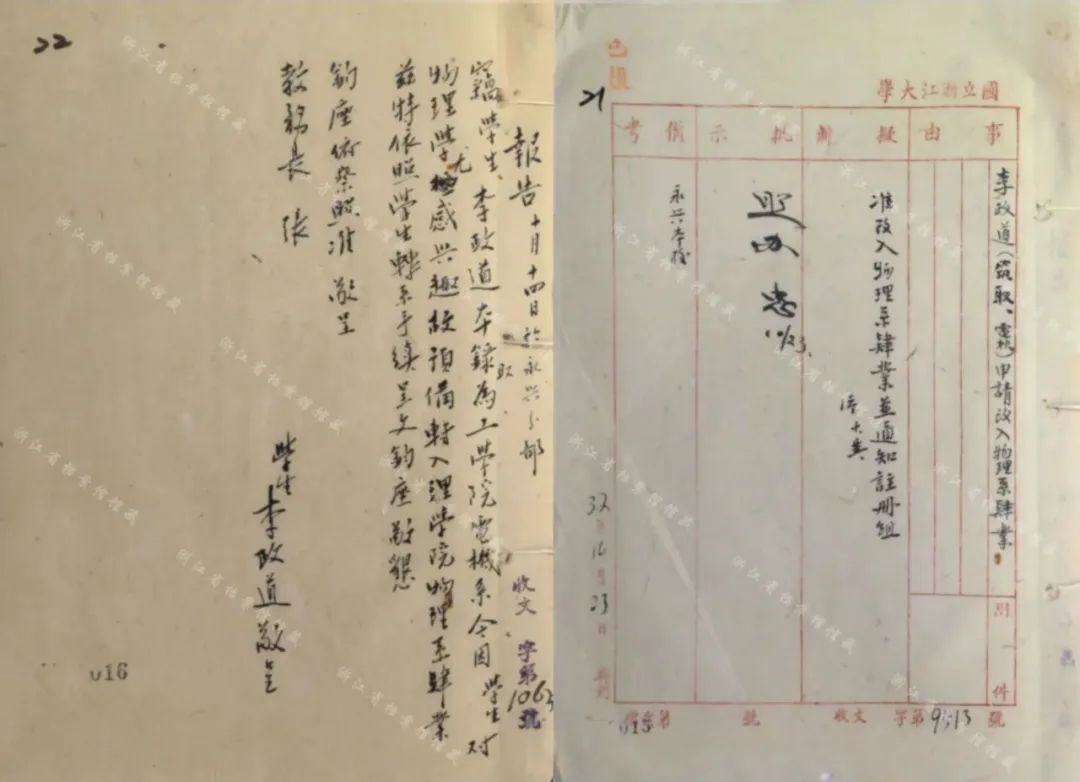 22
報告 十月十四日於永兴分部
竊學生李政道本錄取為工學院電機系今因學生对
物理學尤感兴趣故預備轉入理學院物理系肄業
兹特依照學生轉系手續呈文鈞座敬懇
鈞座俯察照准 敬呈
教務長 張
學生 李政道 敬呈
收文 字第1063號
016
21
國立浙江大學
事由
擬辦
批示
備考
李政道(筑取、電機)申請改入物理系肄業。
附件
准改入物理系肄業並通知註冊組
照办
10/23
永兴本校
32年10月23日
收文 字第9513號
015
浙江省档案馆馆藏